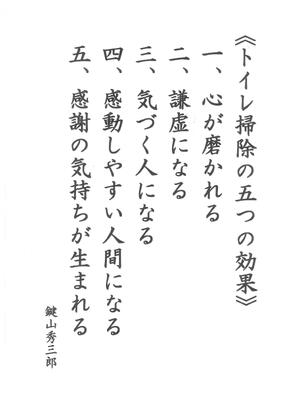 《トイレ掃除の五つの効果》
一、心が磨かれる
二、謙虚になる
三、気づく人になる
四、感動しやすい人間になる
五、感謝の気持ちが生まれる
鍵山秀三郎